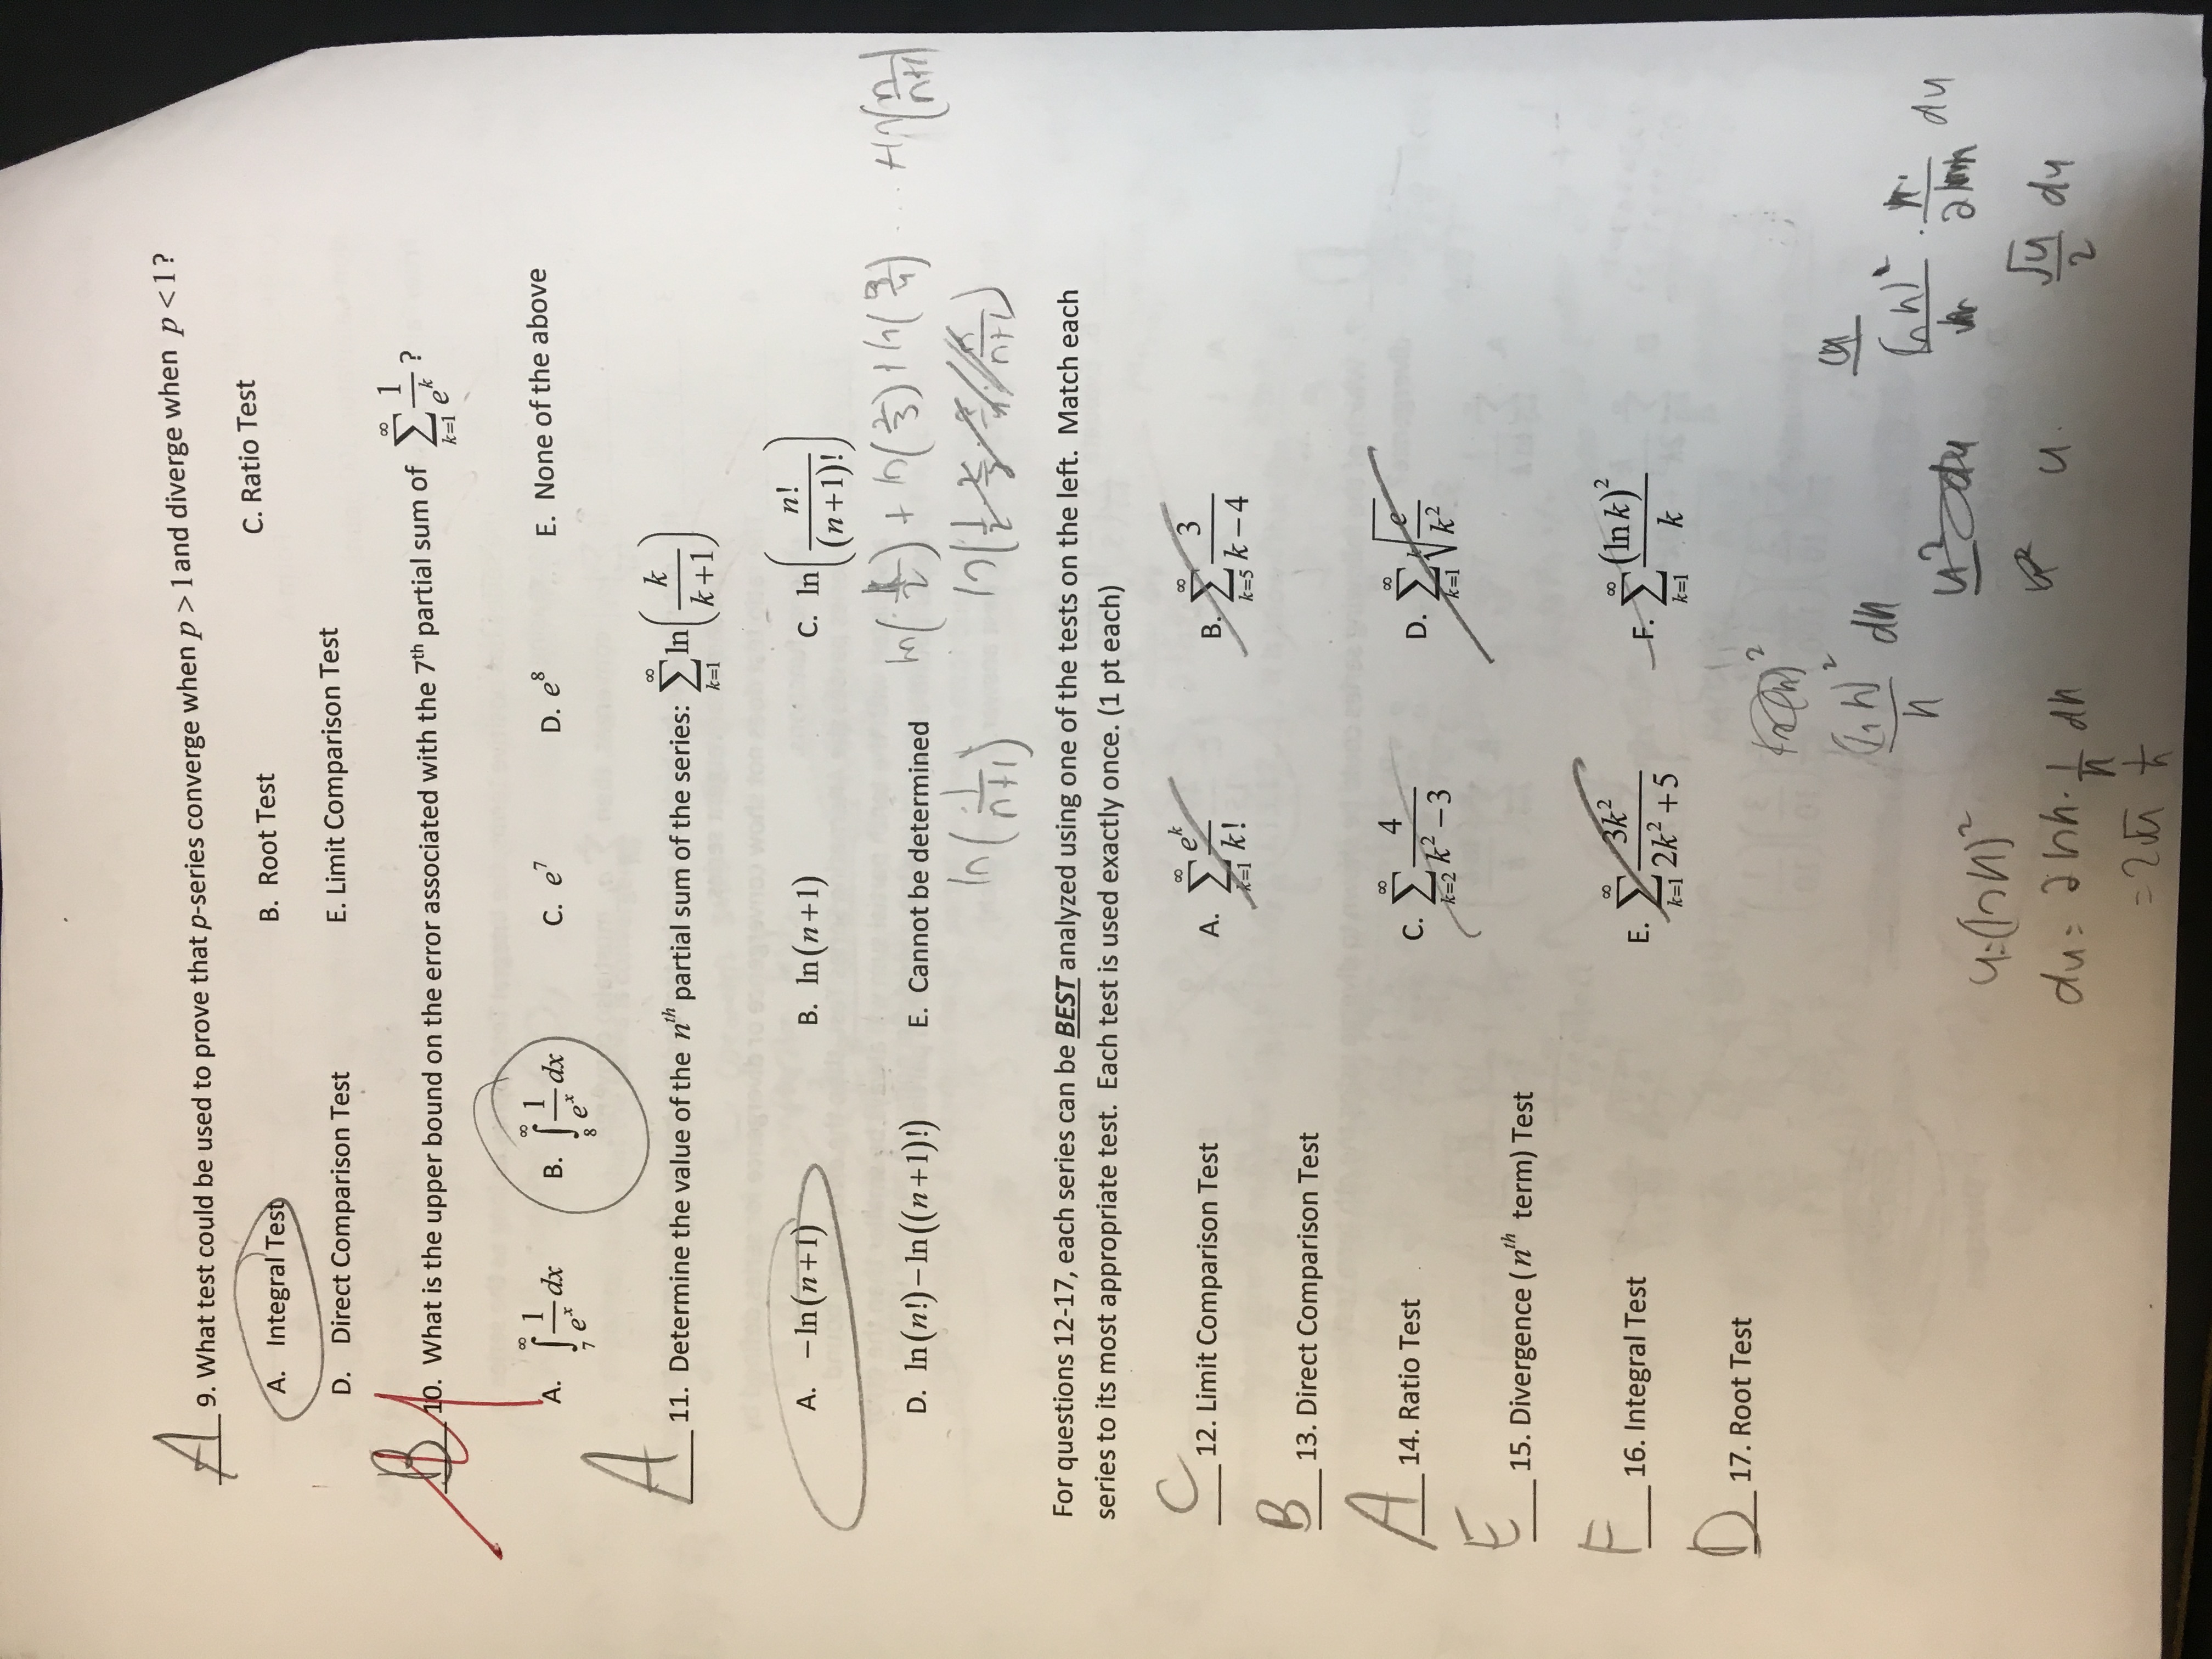 A 9. What test could be used to prove that p-series converge when p > 1 and diverge when p < 1?
A. Integral Test B. Root Test C. Ratio Test
D. Direct Comparison Test E. Limit Comparison Test
B 10. What is the upper bound on the error associated with the 7th partial sum of ∑_{k=1}^{∞} 1/e^k ?
A. ∫_7^∞ 1/e^x dx B. ∫_8^∞ 1/e^x dx C. e^7 D. e^8 E. None of the above
A 11. Determine the value of the n^th partial sum of the series: ∑_{k=1}^{∞} ln(k/(k+1))
A. −ln(n+1) B. ln(n+1) C. ln(n!/(n+1)!)
D. ln(n!)−ln((n+1)!) E. Cannot be determined
ln(1/2) + ln(2/3) + ln(3/4) ... + ln(n/(n+1))
ln(1/(n+1))
For questions 12-17, each series can be BEST analyzed using one of the tests on the left. Match each
series to its most appropriate test. Each test is used exactly once. (1 pt each)
C 12. Limit Comparison Test A. ∑_{k=1}^{∞} e^k/k! B. ∑_{k=5}^{∞} 3/(k−4)
B 13. Direct Comparison Test
A 14. Ratio Test C. ∑_{k=2}^{∞} 4/(k²−3) D. ∑_{k=1}^{∞} ᵏ√(e/k²)
E 15. Divergence (n^th term) Test
F 16. Integral Test E. ∑_{k=1}^{∞} 3k²/(2k²+5) F. ∑_{k=1}^{∞} (ln k)²/k
D 17. Root Test
(ln n)²/n dn
u=(ln n)²
du = 2 ln n · 1/n dn
u
√u/2 du
= 2√u 1/n